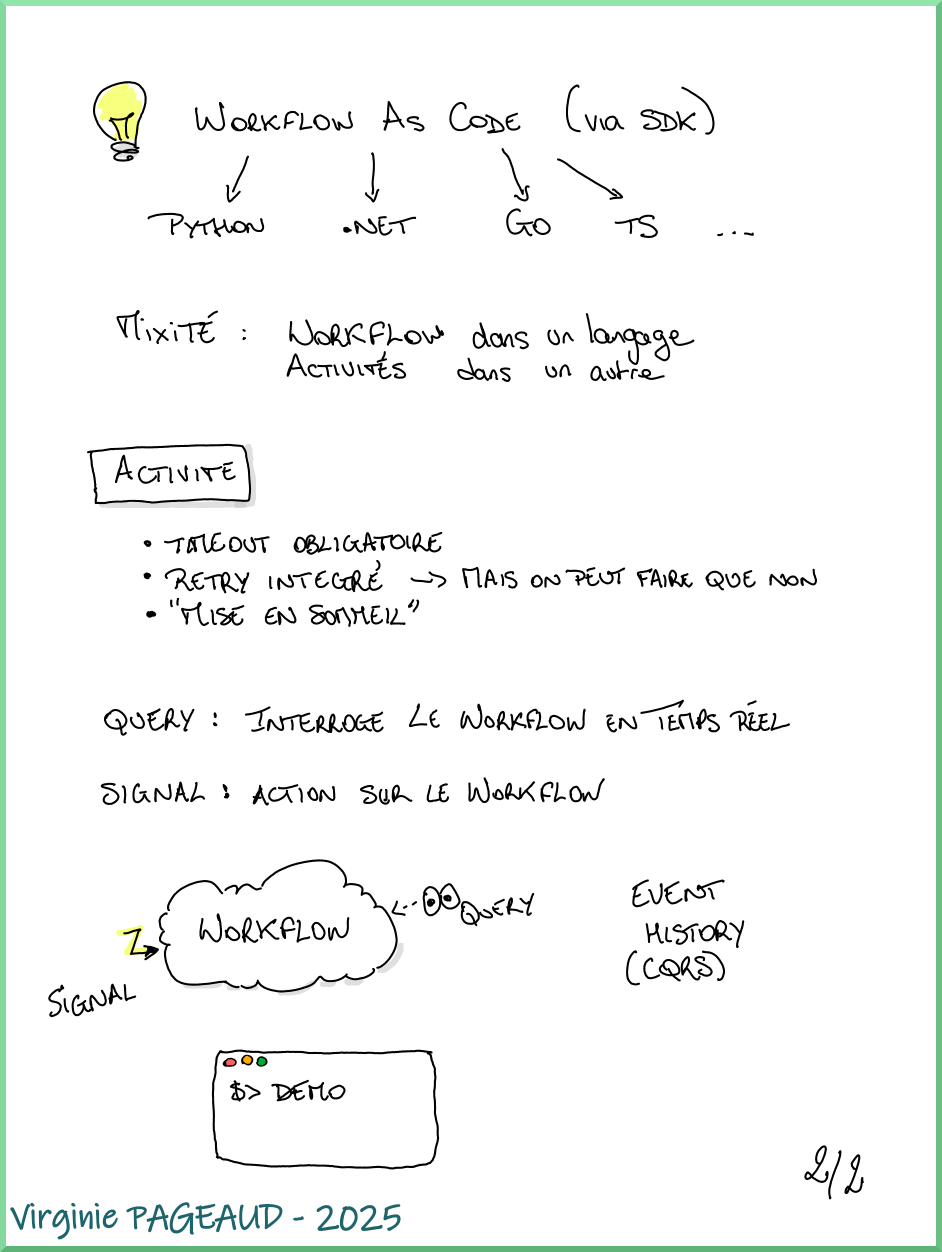 WORKFLOW AS CODE (VIA SDK)
PYTHON .NET GO TS ...
MIXITÉ : WORKFLOW dans un langage
ACTIVITÉS dans un autre
ACTIVITÉ
• TIMEOUT OBLIGATOIRE
• RETRY INTÉGRÉ → MAIS ON PEUT FAIRE QUE NON
• "MISE EN SOMMEIL"
QUERY : INTERROGE LE WORKFLOW EN TEMPS RÉEL
SIGNAL : ACTION SUR LE WORKFLOW
WORKFLOW
QUERY
SIGNAL
EVENT
HISTORY
(CQRS)
$> DEMO
2/2
Virginie PAGEAUD - 2025